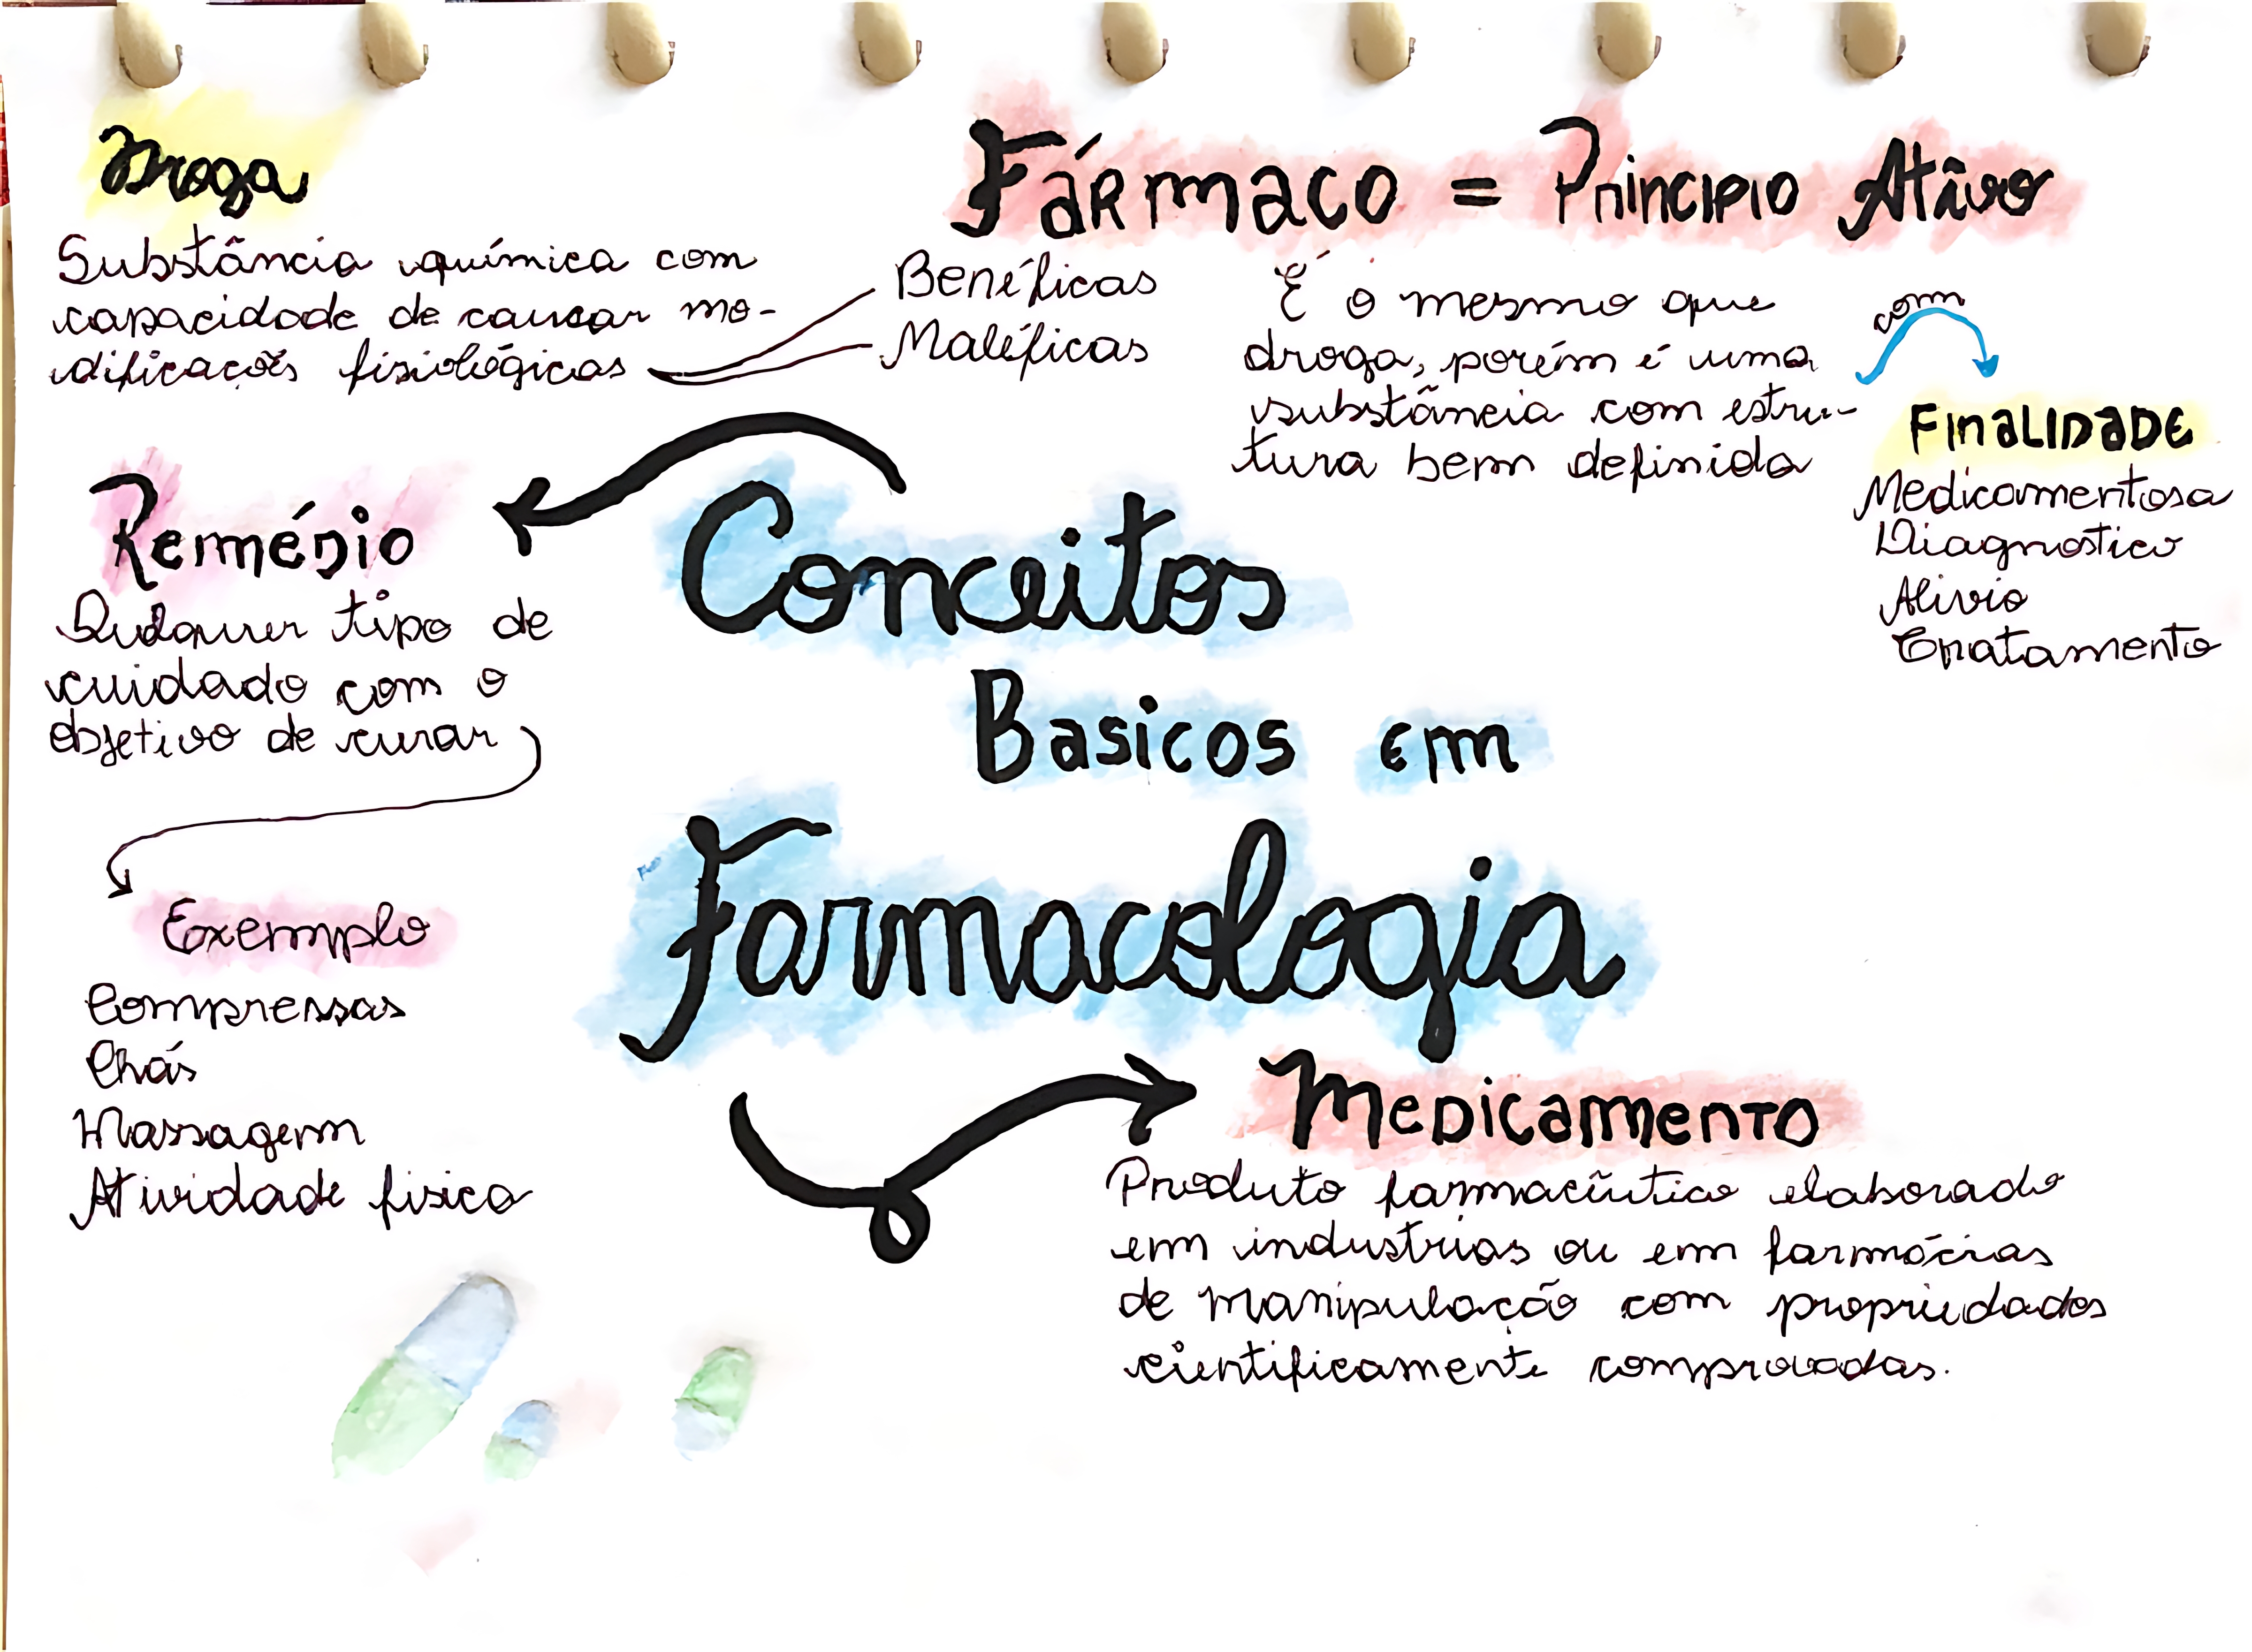 Droga
Substância química com
capacidade de causar mo-
dificações fisiológicas
Benéficas
Maléficas
Fármaco = Principio Ativo
É o mesmo que
droga, porém é uma
substância com estru-
tura bem definida
com
FinaLIDADE
Medicamentosa
Diagnostico
Alivio
Tratamento
Conceitos
Basicos em
Farmacologia
Remédio
Qualquer tipo de
cuidado com o
objetivo de curar
Exemplo
Compressas
Chás
Massagem
Atividade fisica
Medicamento
Produto farmacêutico elaborado
em industrias ou em farmácias
de manipulação com propriedades
cientificamente comprovadas.